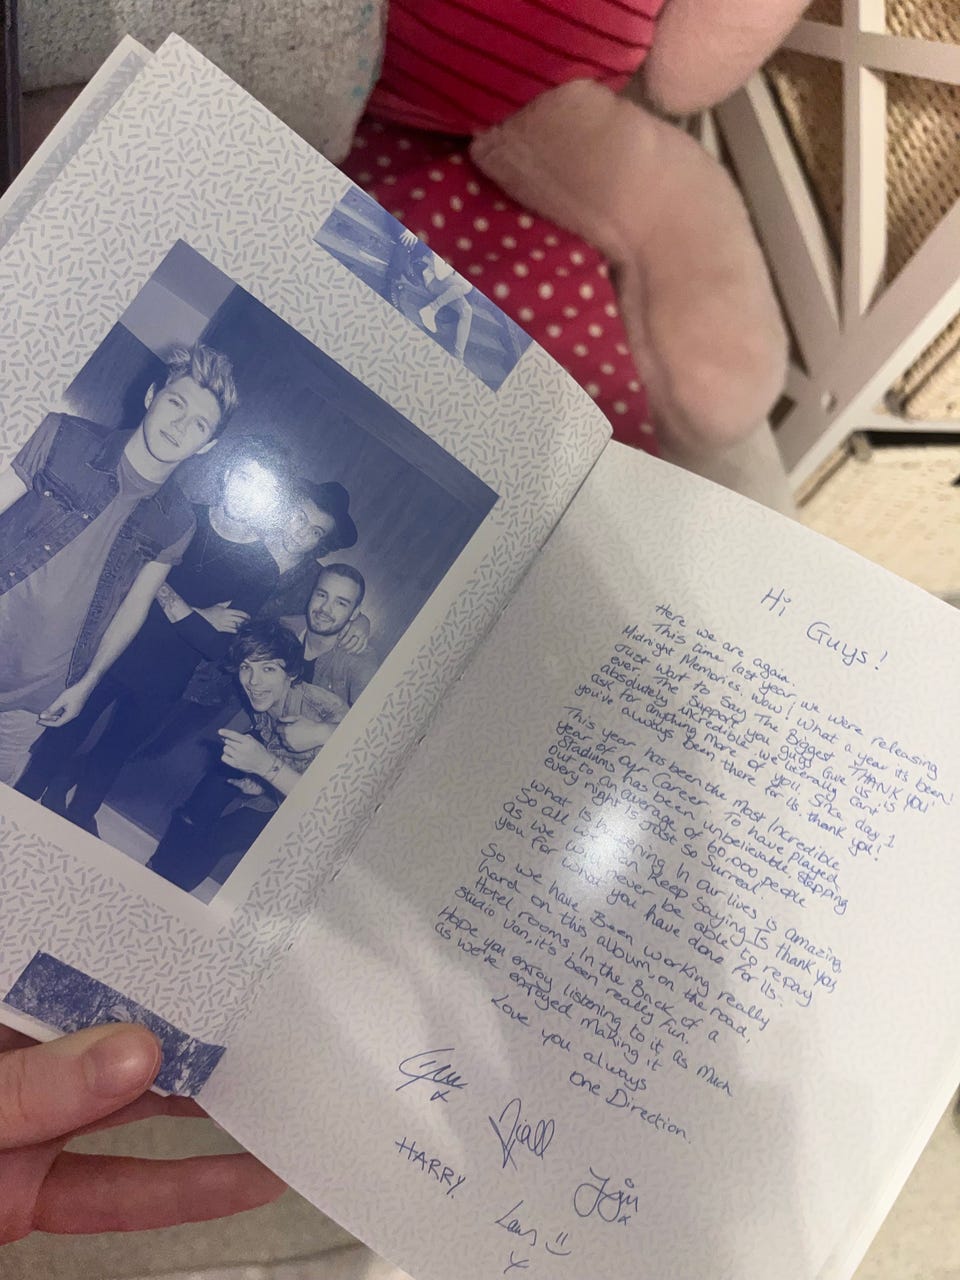 Hi Guys!
Here we are again.
This time last year, we were releasing
Midnight Memories. Wow! What a year it's been!
Just want to say The Biggest THANK YOU
ever. The support you guys give us is
absolutely incredible. We literally cant
ask for anything more of you. Since day 1
you've always been there for us, thank you!
This year has been the most Incredible
year of our Career. To have played
Stadiums has been unbelievable, stepping
out to an average of 60,000 people
every night is Just so Surreal.
what is happening In our lives is amazing,
So all we can keep saying Is thank you
as we will never be able to repay
you for what you have done for Us.
So we have Been working really
hard on this album, on the road,
Hotel rooms, In the Back of a
Studio van, it's been really fun.
Hope you enjoy listening to it as Much
as we've enjoyed Making it
Love you always
One Direction.
Niall
HARRY